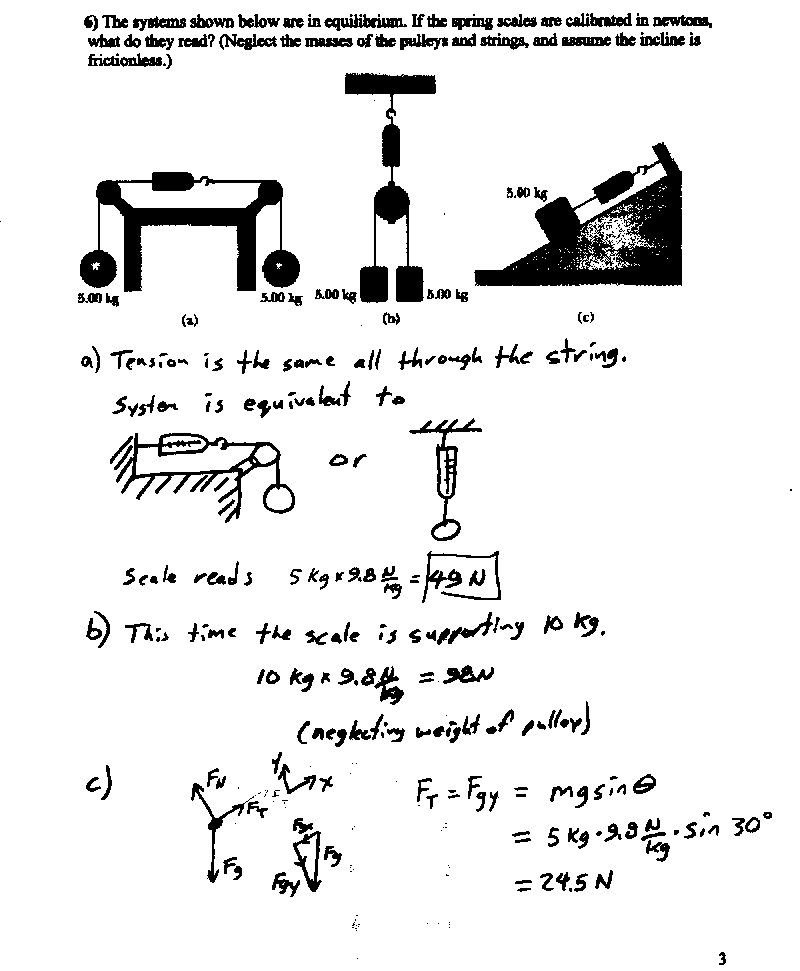 6) The systems shown below are in equilibrium. If the spring scales are calibrated in newtons,
what do they read? (Neglect the masses of the pulleys and strings, and assume the incline is
frictionless.)
5.00 kg
5.00 kg 5.00 kg
5.00 kg
5.00 kg
(a)
(b)
(c)
a) Tension is the same all through the string.
System is equivalent to
or
Scale reads 5 kg x 9.8 N/kg = 49 N
b) This time the scale is supporting 10 kg.
10 kg x 9.8 N/kg = 98N
(neglecting weight of pulley)
c)
FN
y
x
FT
Fg
Fgx
Fgy
Fg
FT = Fgy = mgsinθ
= 5 kg · 9.8 N/kg · sin 30°
= 24.5 N
3